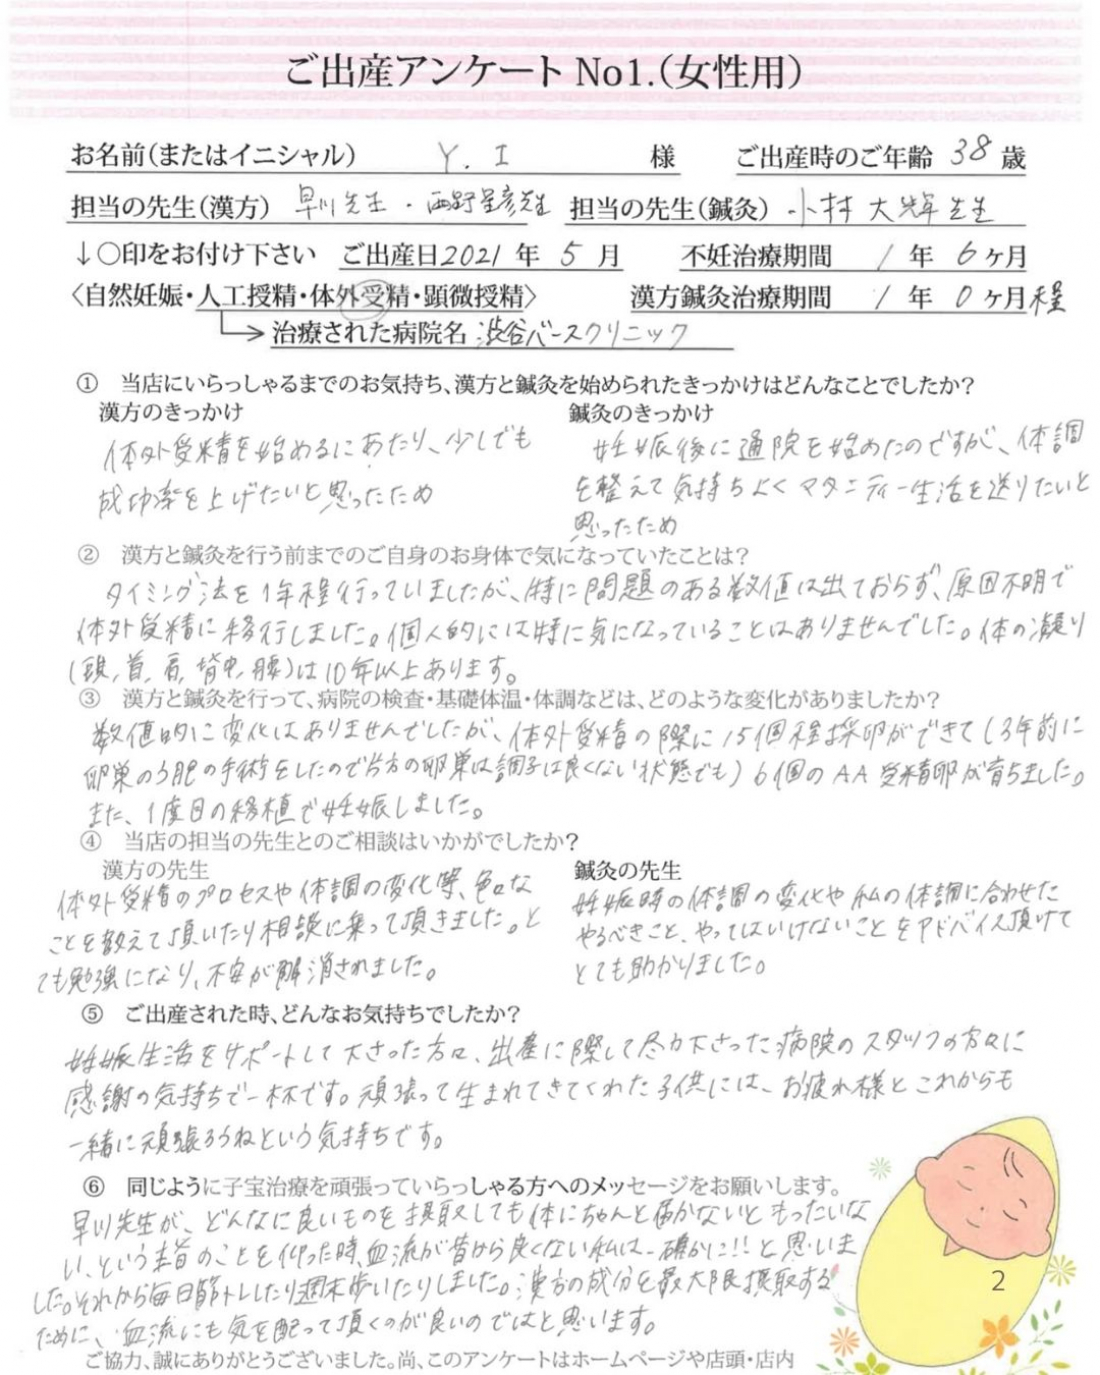 ご出産アンケート No1.(女性用)
お名前(またはイニシャル) Y. I 様 ご出産時のご年齢 38 歳
担当の先生(漢方) 早川先生・西野里彦先生 担当の先生(鍼灸) 小村大輝先生
↓○印をお付け下さい ご出産日2021 年 5 月 不妊治療期間 1 年 6 ヶ月
〈自然妊娠・人工授精・体外受精・顕微授精〉 漢方鍼灸治療期間 1 年 0 ヶ月程
治療された病院名 渋谷バースクリニック
① 当店にいらっしゃるまでのお気持ち、漢方と鍼灸を始められたきっかけはどんなことでしたか?
漢方のきっかけ 鍼灸のきっかけ
体外受精を始めるにあたり、少しでも
成功率を上げたいと思ったため
妊娠後に通院を始めたのですが、体調
を整えて気持ちよくマタニティー生活を送りたいと
思ったため
② 漢方と鍼灸を行う前までのご自身のお身体で気になっていたことは?
タイミング法を1年程行っていましたが、特に問題のある数値は出ておらず、原因不明で
体外受精に移行しました。個人的には特に気になっていることはありませんでした。体の凝り
(頭,首,肩,背中,腰)は10年以上あります。
③ 漢方と鍼灸を行って、病院の検査・基礎体温・体調などは、どのような変化がありましたか?
数値的に変化はありませんでしたが、体外受精の際に15個程採卵ができて(3年前に
卵巣のう腫の手術をしたので片方の卵巣は調子は良くない状態でも)6個のAA受精卵が育ちました。
また、1度目の移植で妊娠しました。
④ 当店の担当の先生とのご相談はいかがでしたか?
漢方の先生 鍼灸の先生
体外受精のプロセスや体調の変化等、色々な
ことを教えて頂いたり相談に乗って頂きました。と
ても勉強になり、不安が解消されました。
妊娠時の体調の変化や私の体調に合わせた
やるべきこと、やってはいけないことをアドバイス頂けて
とても助かりました。
⑤ ご出産された時、どんなお気持ちでしたか?
妊娠生活をサポートして下さった方々、出産に際して尽力下さった病院のスタッフの方々に
感謝の気持ちで一杯です。頑張って生まれてきてくれた子供には、お疲れ様とこれからも
一緒に頑張ろうねという気持ちです。
⑥ 同じように子宝治療を頑張っていらっしゃる方へのメッセージをお願いします。
早川先生が、どんなに良いものを摂取しても体にちゃんと届かないともったいな
い、という主旨のことを仰った時、血流が昔から良くない私は、確かに!!と思いま
した。それから毎日筋トレしたり週末歩いたりしました。漢方の成分を最大限摂取する
ために、血流にも気を配って頂くのが良いのではと思います。
2
ご協力、誠にありがとうございました。尚、このアンケートはホームページや店頭・店内